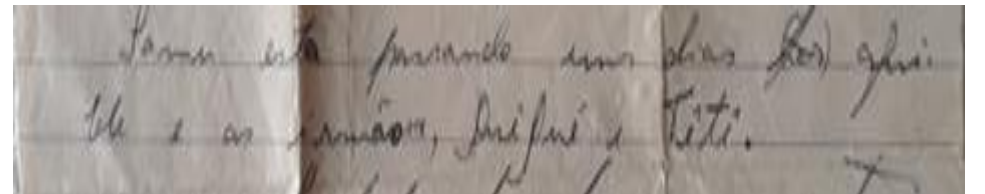 Samu está passando uns dias por aqui.
Ele e as irmãos, Juéjué e Titi.